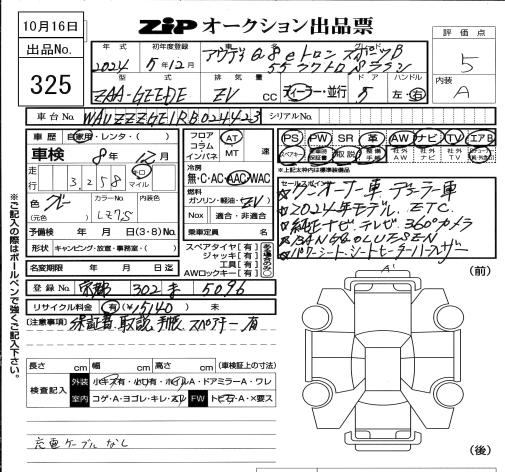 10月16日
ZIP オークション出品票
評価点
5
内装
A
出品No.
325
年式 初年度登録 車名 グレード
2024 5年12月 アウディ Q8eトロン スポーツB
55 クワトロ
型式 排気量 ドア ハンドル
ZAA-GEEDE EV CC ディーラー・並行 5 左・右
車台No. WAUZZZGE1RB024423 シリアルNo.
車歴 自家用・レンタ・( )
車検 8年 12月
走行 3,258 キロ マイル
色 グレー カラーNo. LZ7S 内装色
(元色)
予備検 年 月 日(3・8)No.
形状 キャンピング・放置・事務室・( )
名変期限 年 月 日迄
フロア コラム インパネ AT MT 速
冷房 無・C・AC・AAC・WAC
燃料 ガソリン・軽油・EV
Nox 適合・非適合
乗車定員 名
スペアタイヤ[有]
ジャッキ[有]
工具[有]
AWロックキー[有]
PS PW SR 革 AW ナビ TV エアB
スペアキー 保証書 取説 整備手帳 社外AW 社外ナビ 社外TV
※上記太枠内は標準装備品
セールスポイント
☆ワンオーナー車、デューラー車
☆2024年モデル. ETC.
☆純正ナビ.テレビ.360°カメラ
☆BANG&OLUFSEN
☆パワーシート.シートヒーター.
登録No. 302 5096
リサイクル料金 有(¥15140) 未
(注意事項) 保証書.取説.手帳.スペアキー有
長さ cm 幅 cm 高さ cm (車検証上の寸法)
検査記入 外装 小キズ有・小凹有・ホイルA・ドアミラーA・ワレ
室内 コゲA・ヨゴレ・キレ・スレ FW トビ石・A・×要ス
充電ケーブルなし
※ご記入の際はボールペンで強くご記入下さい。
(前)
A1
(後)